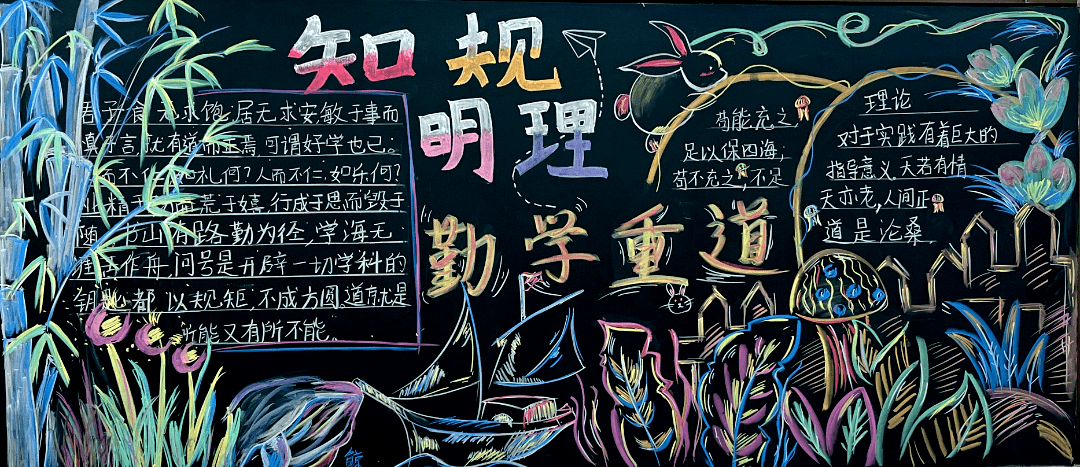 知规
明理
勤学重道
君子食无求饱;居无求安敏于事而
慎于言就有道而正焉,可谓好学也已。
而不仁,如礼何?人而不仁,如乐何?
业精于勤荒于嬉,行成于思而毁于
随 书山有路勤为径,学海无
涯苦作舟,问号是开辟一切学科的
钥匙都 以规矩,不成方圆,道就是
所能又有所不能。
苟能充之
足以保四海;
苟不充之,不足
理论
对于实践有着巨大的
指导意义,天若有情
天亦老,人间正
道是沧桑